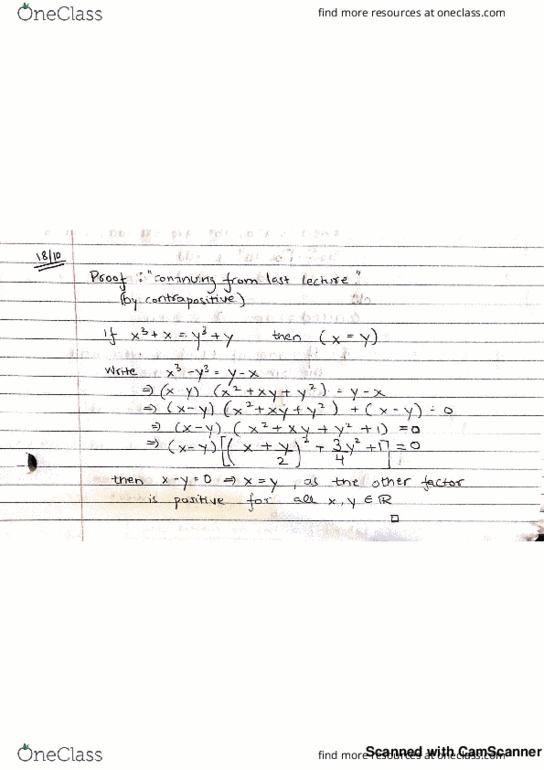 OneClass
find more resources at oneclass.com
18/10
Proof :- "continuing from last lecture"
(by contrapositive)
if x³+x = y³+y then (x = y)
Write x³-y³ = y-x
⇒ (x-y) (x²+xy+y²) = y-x
⇒ (x-y) (x²+xy+y²) + (x-y) = 0
⇒ (x-y) (x²+xy+y²+1) = 0
⇒ (x-y) [(x+y/2)² + 3/4 y² +1] = 0
then x-y=0 ⇒ x=y, as the other factor
is positive for all x,y ∈ ℝ
□
OneClass
find more resources at oneclass.com
Scanned with CamScanner